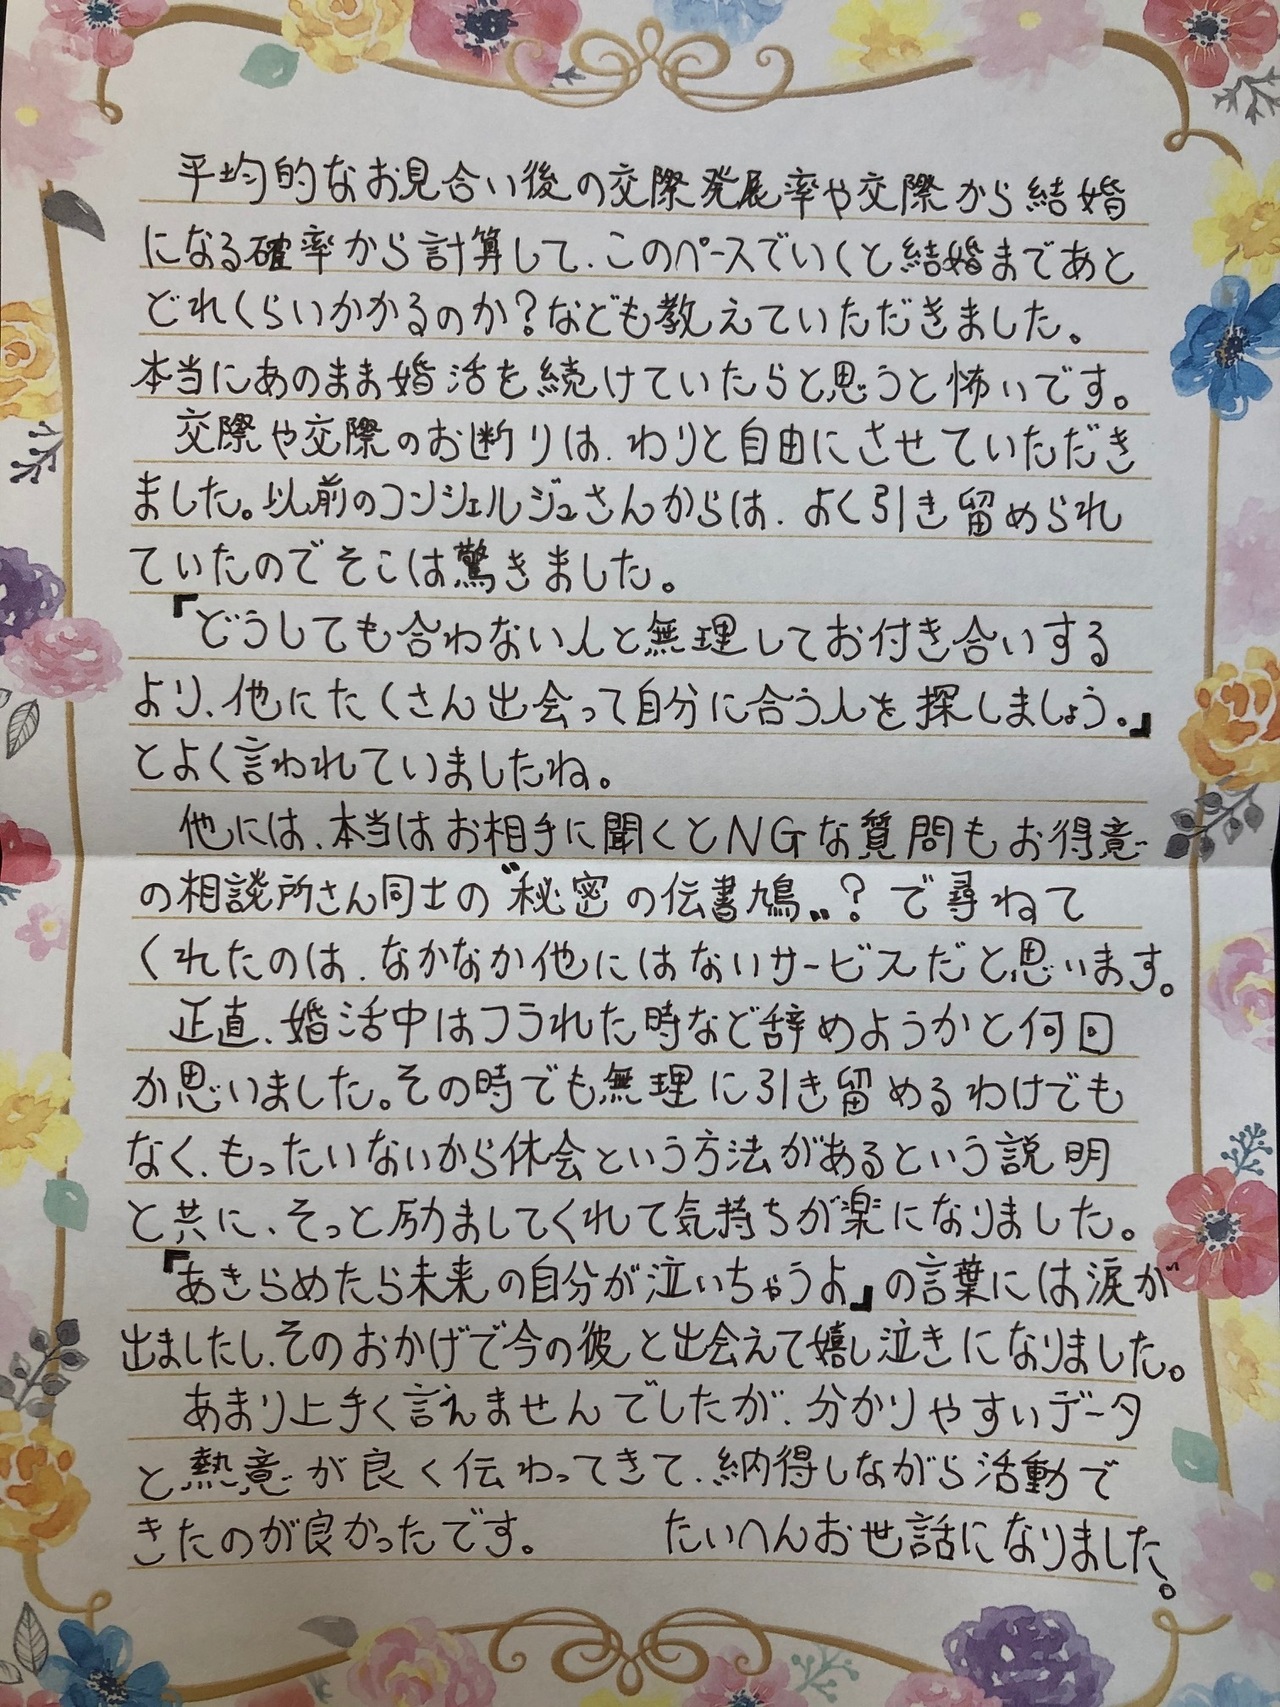 平均的なお見合い後の交際発展率や交際から結婚
になる確率から計算して、このペースでいくと結婚まであと
どれくらいかかるのか？なども教えていただきました。
本当にあのまま婚活を続けていたらと思うと怖いです。
交際や交際のお断りは、わりと自由にさせていただき
ました。以前のコンシェルジュさんからは、よく引き留められ
ていたのでそこは驚きました。
『どうしても合わない人と無理してお付き合いする
より、他にたくさん出会って自分に合う人を探しましょう。』
とよく言われていましたね。
他には、本当はお相手に聞くとNGな質問もお得意
の相談所さん同士の〝秘密の伝書鳩〟？で尋ねて
くれたのは、なかなか他にはないサービスだと思います。
正直、婚活中はフラれた時など辞めようかと何回
か思いました。その時でも無理に引き留めるわけでも
なく、もったいないから休会という方法があるという説明
と共に、そっと励ましてくれて気持ちが楽になりました。
『あきらめたら未来の自分が泣いちゃうよ』の言葉には涙が
出ましたし、そのおかげで今の彼と出会えて嬉し泣きになりました。
あまり上手く言えませんでしたが、分かりやすいデータ
と熱意が良く伝わってきて、納得しながら活動で
きたのが良かったです。　たいへんお世話になりました。